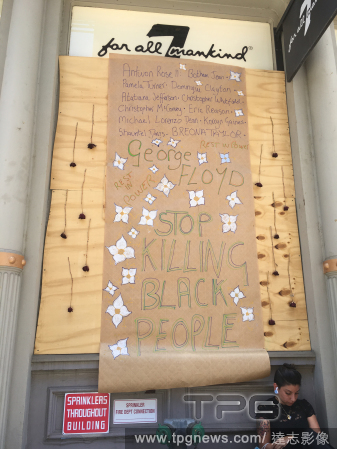 for all 7 mankind®
for all
Antwon Rose II · Botham Jean ·
Pamela Turner · Dominique Clayton ·
Atatiana Jefferson · Christopher Whitfield ·
Christopher McCorvey · Eric Reason ·
Michael Lorenzo Dean ·
BREONNA TAYLOR ·
George
FLOYD
REST IN POWER
STOP
KILLING
BLACK
PEOPLE
SPRINKLERS
THROUGHOUT
BUILDING
SPRINKLER
FIRE DEPT. CONNECTION
TPG
www.tpgnews.com/達志影像